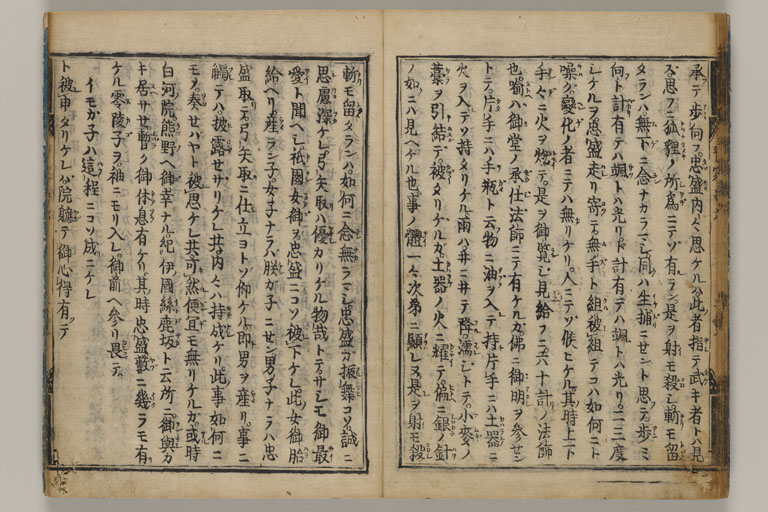 承テ歩向フ忠盛内々思ケルハ此者指テ武キ者トハ見
ズ思フニ狐狸ノ所為ニテゾ有ラン是ヲ射モ殺シ斬モ留
タランハ無下ニ念ナカラマシ同ハ生捕ニセント思テ歩ミ
向ト計有テハ颯トハ光リト計有テハ颯トハ光リ二三度
シケルヲ忠盛走リ寄テ無手ト組被組テコハ如何ニト
噪グ変化ノ者ニテハ無リケリ人ニテゾ候ヒケル其時上下
手々ニ火ヲ燃テ是ヲ御覧シ見給フニ六十計ノ法師
也喩ハ御堂ノ承仕法師ニテ有ケルガ仏ニ御明ヲ参セン
トテ片手ニハ手瓶ト云物ニ油ヲ入テ持片手ニハ土器ニ
火ヲ入テゾ持タリケル雨ハ沃ニサテ降濡シトテ小麦ノ
藁ヲ引結テ被タリケルガ土器ノ火ニ耀テ偏ニ銀ノ針
ノ如ニハ見ヘケル也事ノ體一々次第ニ顕レヌ是ヲ射モ殺
斬モ留タランハ如何ニ念無ラマシ忠盛ガ振舞コソ誠ニ
思慮深ケレ弓矢取ハ優カリケル物哉トテサシモ御最
愛ト聞ヘシ祇園女御ヲ忠盛ニコソ被下ケレ此女御胎
給ヘリ産ラン子女子ナラハ朕カ子ニセン男子ナラハ忠
盛取テ弓矢取ニ仕立ヨトゾ仰ケル即男ヲ産リ事ニ
觸テハ披露セザリケレ共内々ハ持成ケリ此事如何ニ
モノ奏セハヤト被思ケレ共可然便宜モ無リケルガ或時
白河院熊野ヘ御幸ナル紀伊國絲鹿坂ト云所ニ御輿カ
キ居サセ暫ク御休息有ケリ其時忠盛藪ニ幾ラモ有
ケル零陵子ヲ袖ニモリ入レ御前ヘ参リ畏テ
イモカ子ハ這程ニコソ成ニケレ
ト被申タリケレハ院軈テ御心得有テ